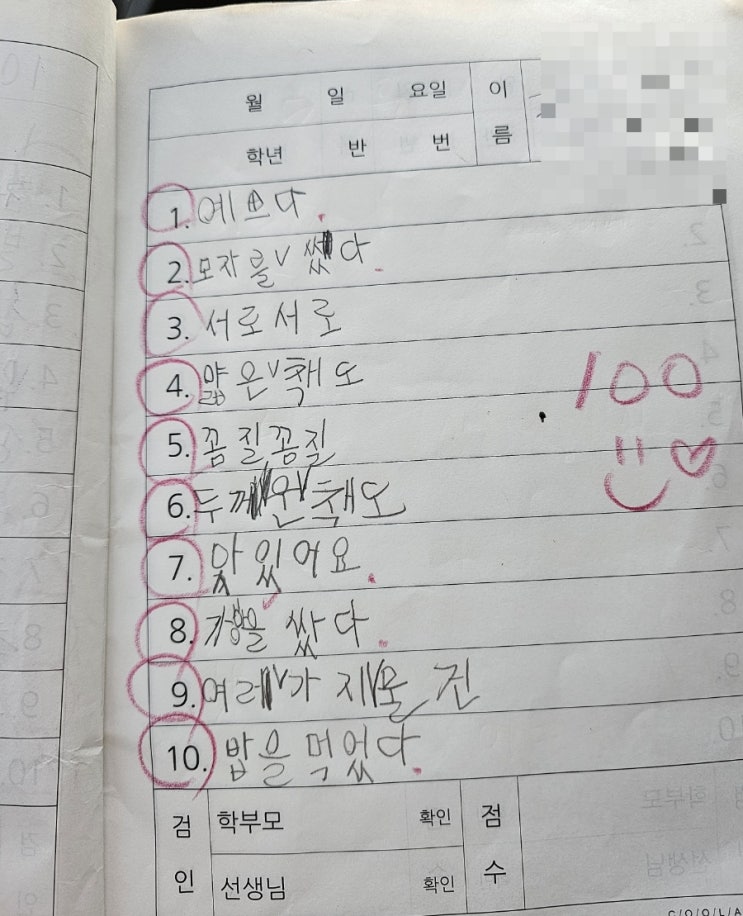 월 일 요일 이름
학년 반 번
1. 예쁘다.
2. 모자를∨썼다.
3. 서로서로
4. 얇은∨책도
5. 꼼질꼼질
6. 두꺼운∨책도
7. 맛있어요.
8. 가방을∨쌌다.
9. 여러∨가지∨물건
10. 밥을 먹었다.
100
검인 학부모 확인 점수
선생님 확인